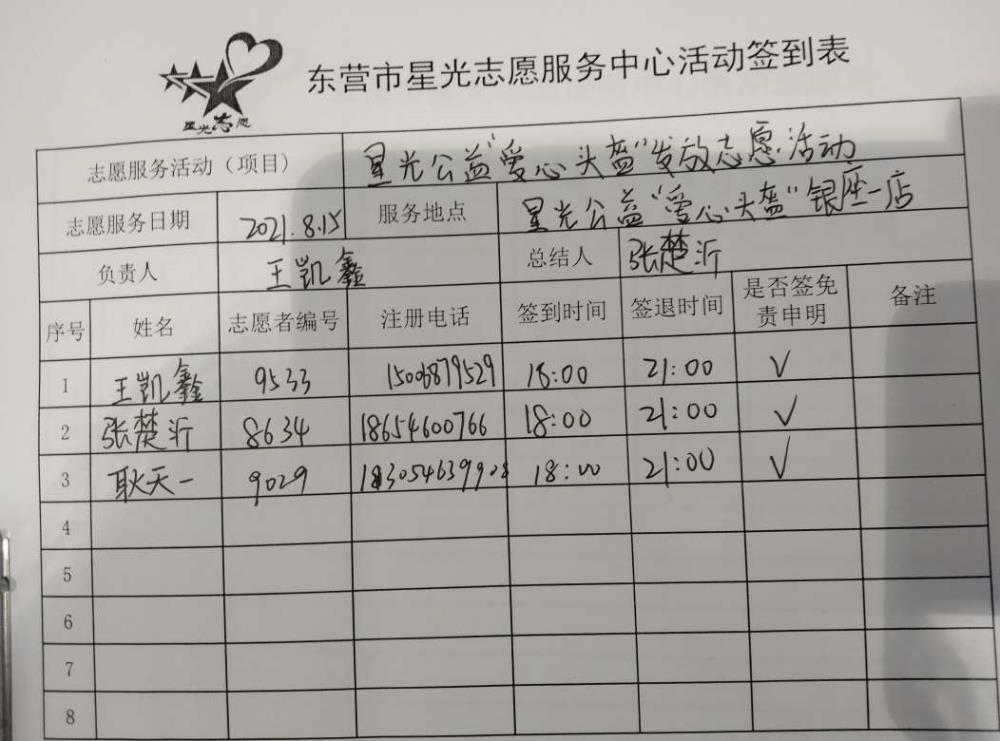 星光志愿
东营市星光志愿服务中心活动签到表
志愿服务活动（项目） 星光公益“爱心头盔”发放志愿活动
志愿服务日期 2021.8.15 服务地点 星光公益“爱心头盔”银座一店
负责人 王凯鑫 总结人 张楚沂
序号 姓名 志愿者编号 注册电话 签到时间 签退时间 是否签免 备注
责申明
1 王凯鑫 9533 15006879529 18:00 21:00 √
2 张楚沂 8634 18654600766 18:00 21:00 √
3 耿天一 9029 183054639908 18:00 21:00 √
4
5
6
7
8